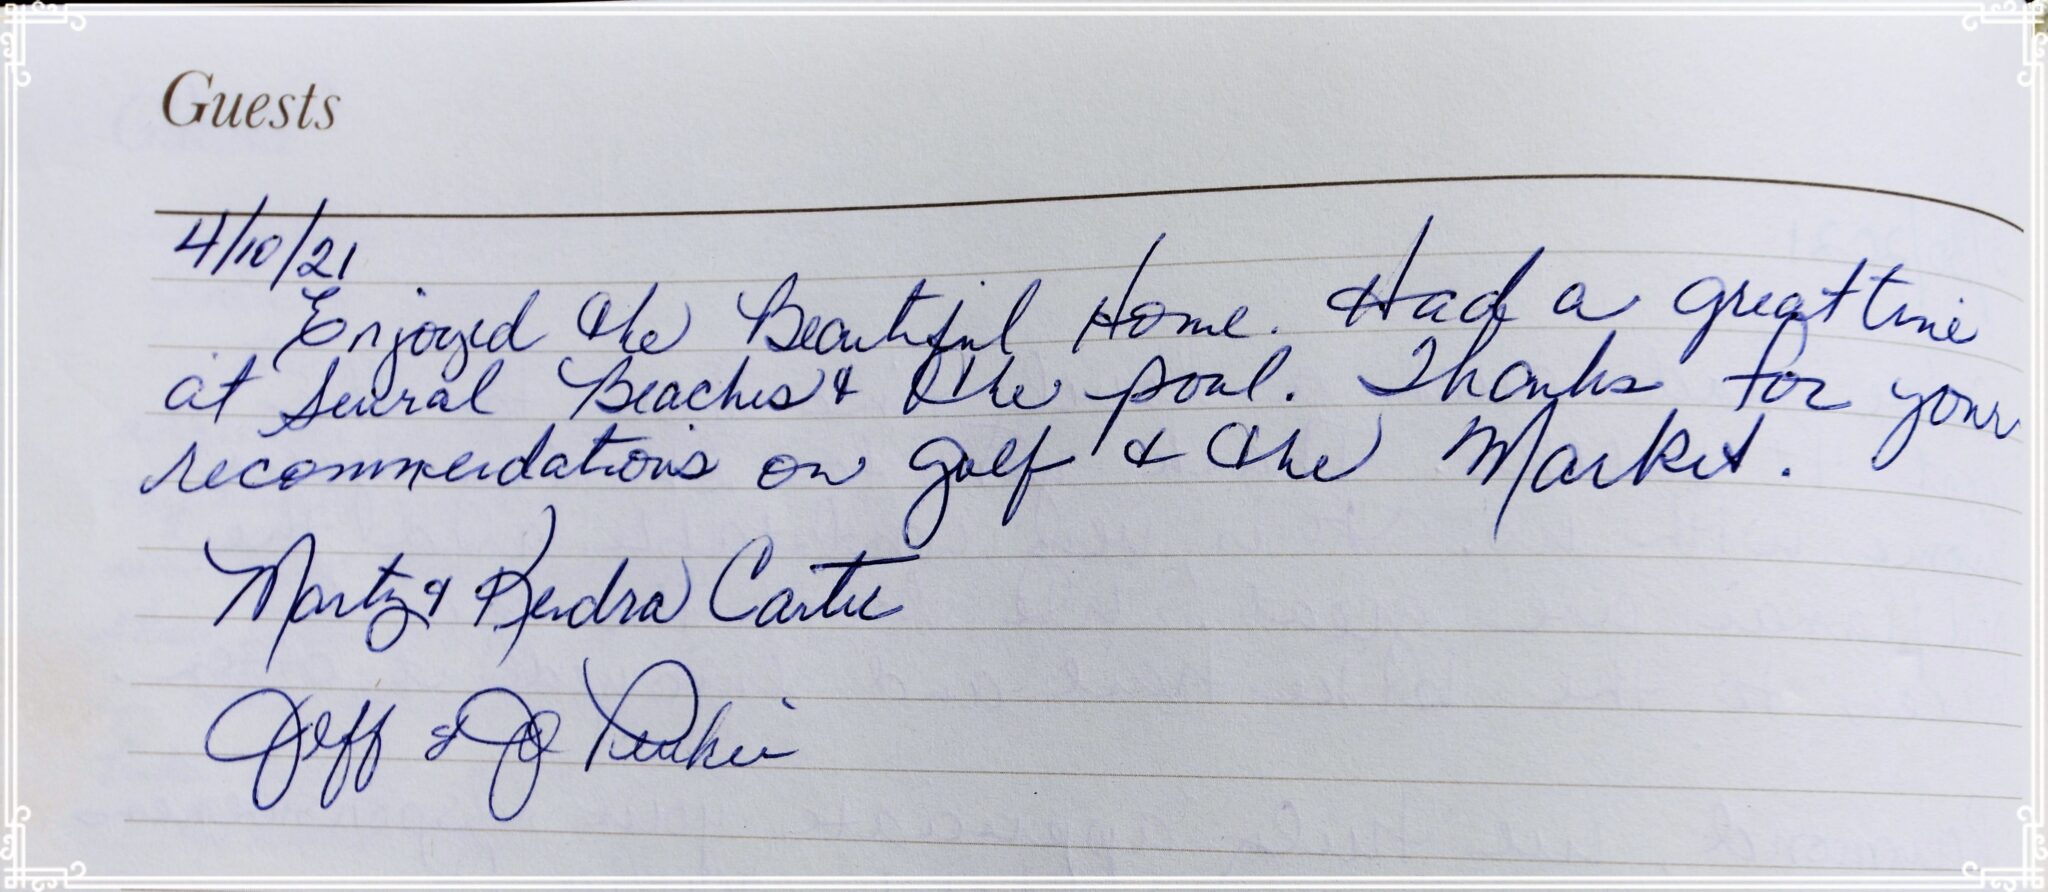 Guests
4/10/21
Enjoyed the Beautiful Home. Had a great time
at several Beaches & the pool. Thanks for your
recommendations on golf & the Market.
Marty & Kendra Carter
Jeff & Jo